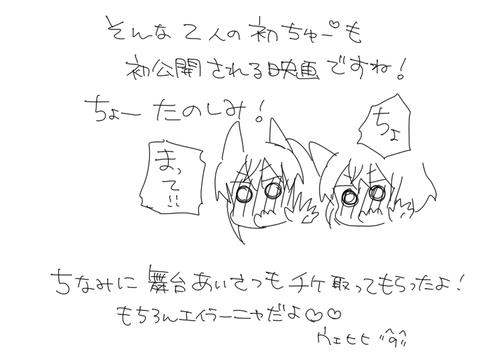 そんな2人の初ちゅー♡も
初公開される映画ですね！
ちょーたのしみ！
ちょ
まって!!
ちなみに舞台あいさつもチケ取ってもらったよ！
もちろんエイラーニャだよ♡♡